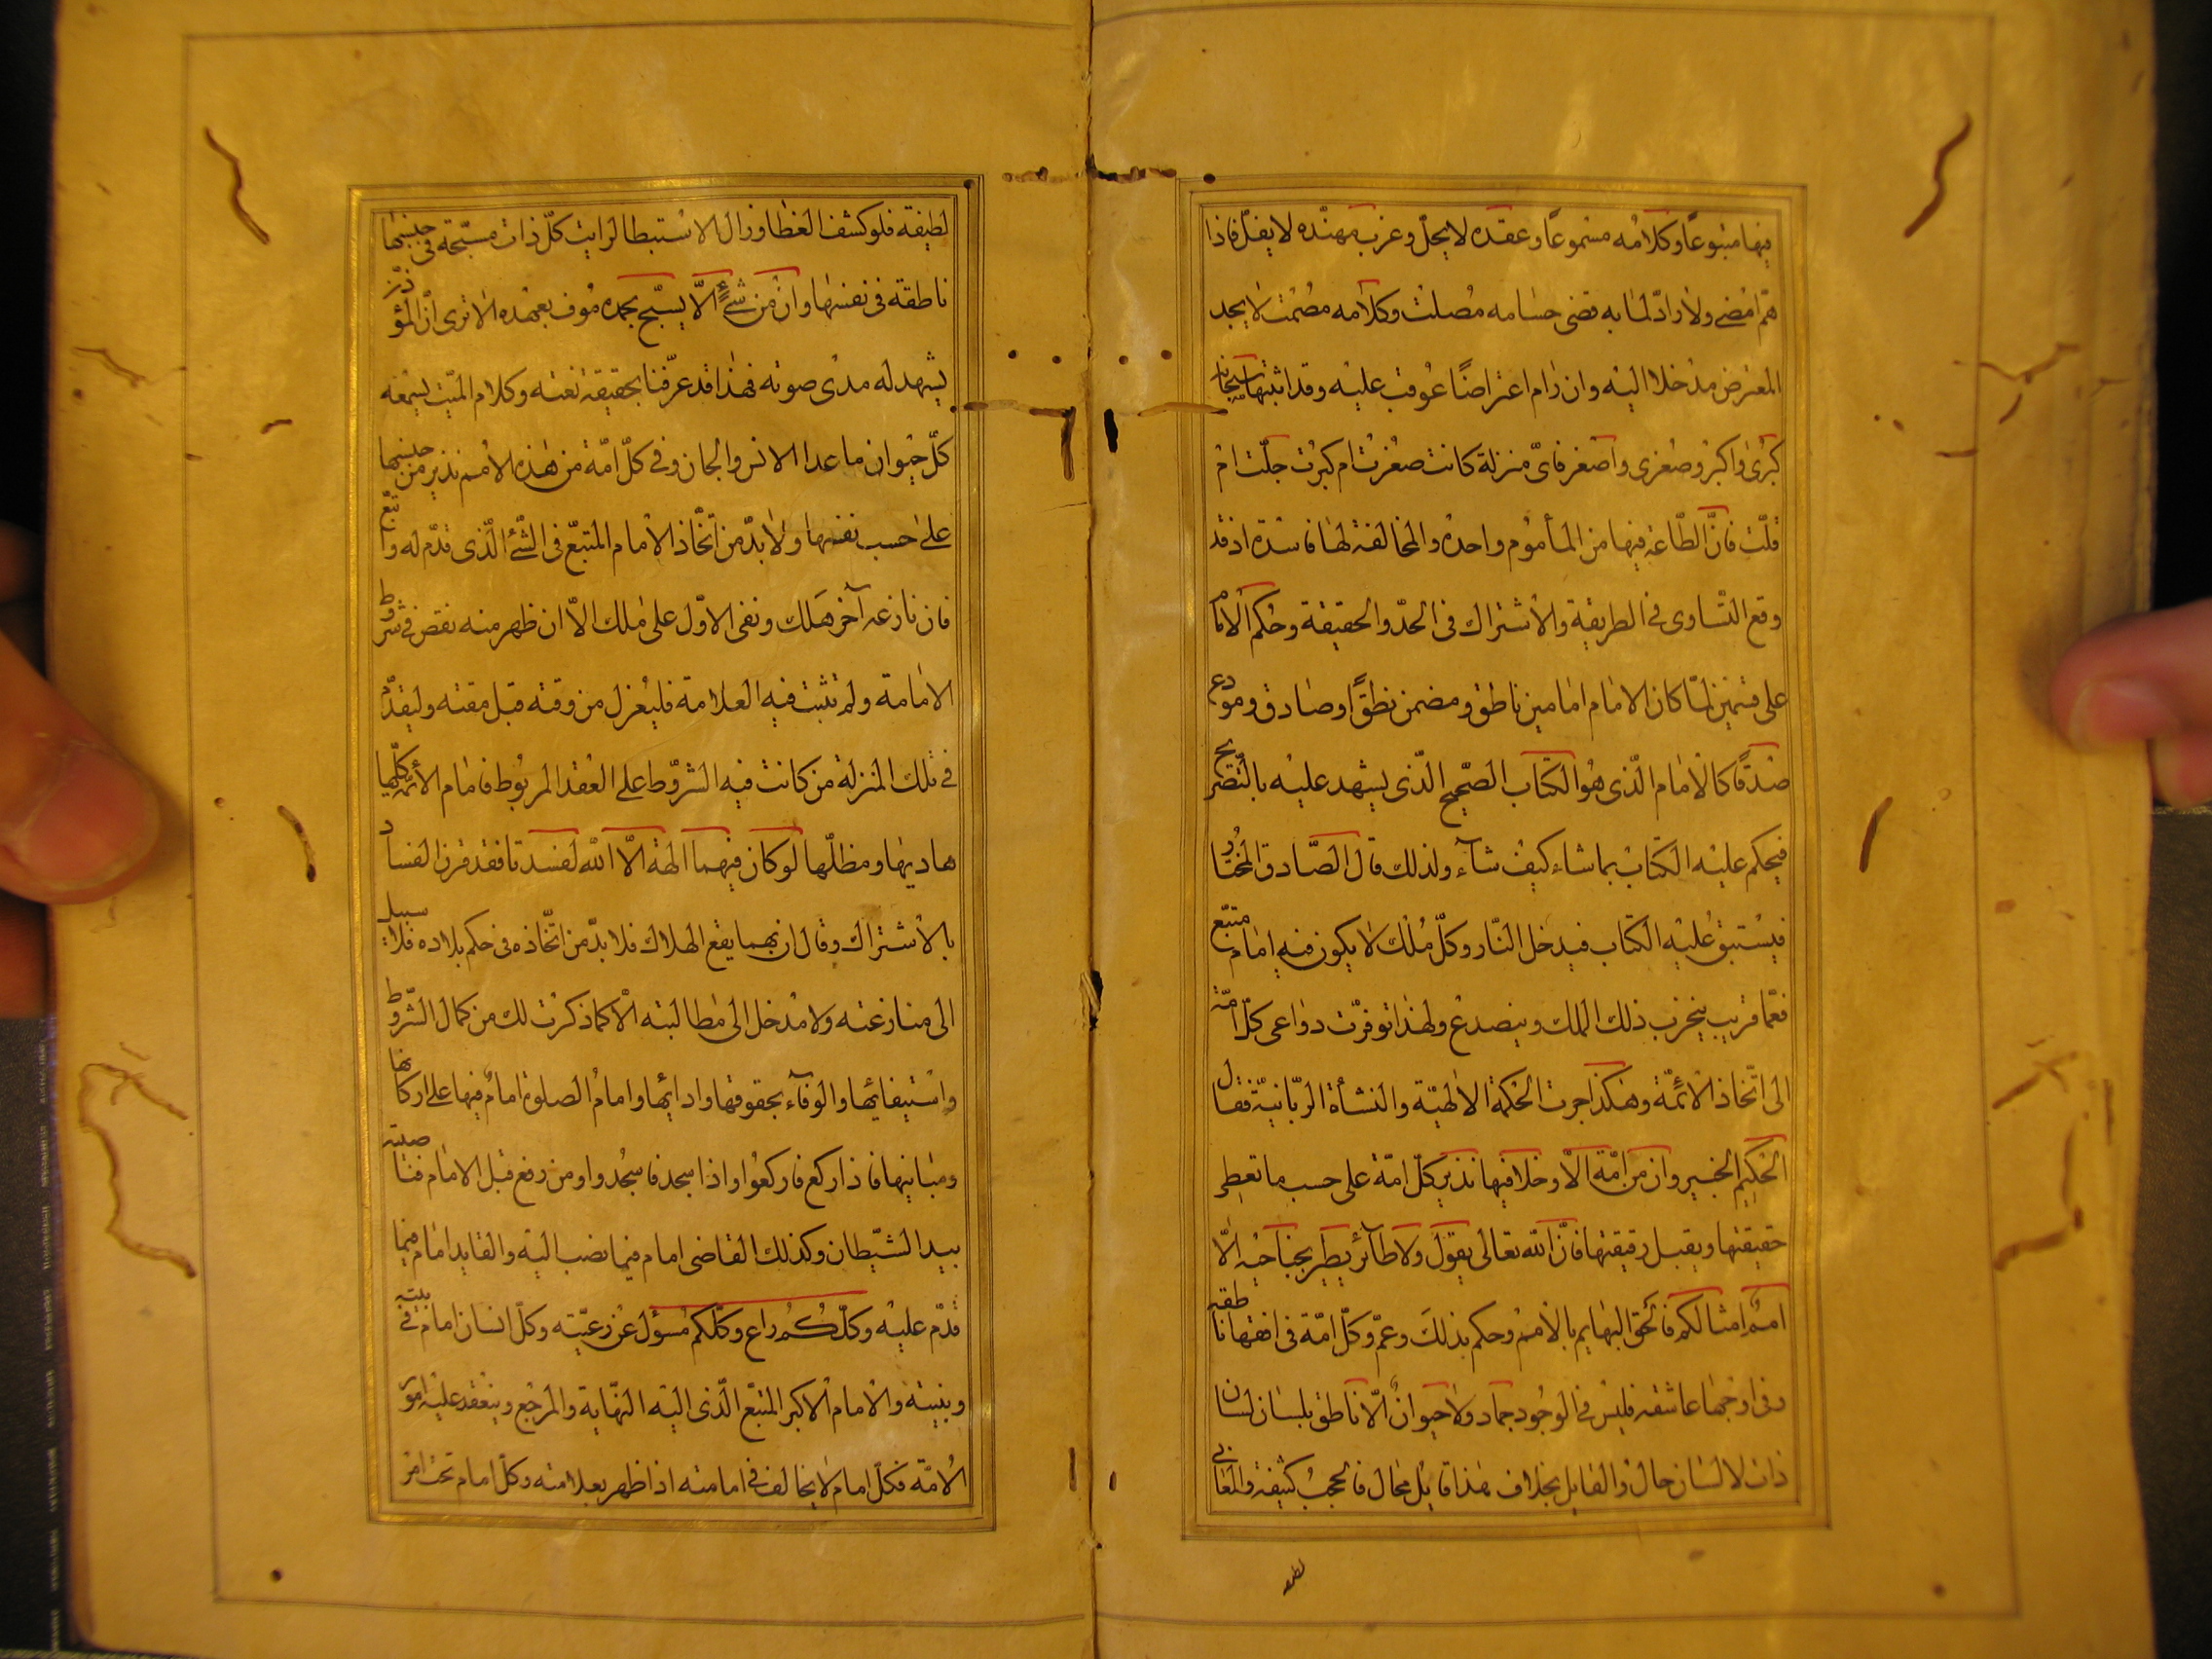 فيها متبوعاً وكلامُه مسْموعاً وعقده لا يحلّ وغرب مهنّده لا يفلّ فاذا
همّ امْضى ولا رادّ لما به قضى حسامه مُصلت وكلامه مصُمت لا يجد
المعترض مدْخلا اليْه وان رام اعتراضاً عُوقب عليْه وقد اثبتها سبحانه
كبْرى واكبر وصغرى واصغر فاىّ منزلة كانت صغرت ام كبرت جلّت امْ
قلّت فانّ الطّاعة فيها من المأموُم واحدة والمخالفة لها فاسدة اذ قد
وقع التّساوى فى الطريقة والاشتراك فى الحدّ والحقيقة وحكم الامام
على قسمين لمّا كان الامام امامين ناطق ومضمن نطقاً وصادق ومودع
صدقاً كالامام الّذى هُو الكتاب الصّحيح الّذى يشهد عليْه بالتّصريح
فيحكم عليْه الكتابْ بما شاء كيْف شآء ولذلك قال الصّادق المختار
فيسْتبق عليْه الكتاب فيدخل النّار وكلّ مُلك لا يكون فيه امام متبّع
فعمّا قريب يخرب ذلك الملك وينصدع ولهذا توفرّت دواعى كلّ امّة
الى اتّخاذ الائمّة وهكذا جرت الحكمة الالهيّة والنشأة الربّانيّة فقال
الحكيم الخبير وان من امّة الاّ وخلا فيها نذير كلّ امّة على حسب ما تعطى
حقيقتها ويقبل رقيقتها فانّ الله تعالى يقول ولا طآئر يطير بجناحيْه الاّ
اممٌ امثالكم فالحق البهايم بالامم وحكم بذلك وعمّ وكلّ امّة فى افقها ناطقه
وفى اوجها عاشقه فليْس فى الوجُود جماد ولا حيوانٌ الاّ ناطق بلسان لسان
ذات لا لسان حال والقايل بخلاف هذا قايُل محال فالحجبُ كثيفة والمعانى
لطيفة
لطيفة فلو كشف الغطا وزال الاستبطا لرايت كلّ ذات مسبّحة فى جنسها
ناطقة فى نفسها وان من شىءٍ الاّ يسبّح بحمده مُوف بعهْده الا ترى انّ المؤذّن
يشهد له مدْى صوته فهذا قد عرّفنا بحقيقة نعته وكلام الميّت يسمْعه
كلّ حيْوان ما عدا الانس والجان وفى كلّ امّة من هذه الامُم نذير من جنسها
على حسب نفسها ولا بدّ من اتّخاذ الامام المتبّع فى الشّىء الّذى قدّم له واتبع
فان نازعه آخر هَلك وبقى الاوّل على ملك الاّ ان ظهر منه نقص فى شروط
الامامة ولم تثبت فيه العلامة فليعْزل من وقته قبل مقته وليقدّم
فى تلك المنزلة من كانت فيه الشروّط على العقد المربوُط فامام الائمّة كلّها
هاديها ومظلّها لو كان فيهما الهة الاّ الله لفسدتا فقد قرن الفساد
بالاشتراك وقال ان بهما يقع الهلاك فلا بدّ من اتّخاذه فى حكم بلاده فلا سبيل
الى منازعته ولا مدْخل الى مطالبته الاّ كما ذكرت لك من كمال الشّروط
واسْتيفائها والوفآء بحقوقها وادائها وامام الصلوة امامٌ فيها على اركانها
ومبانيها فاذا ركع فاركعُوا واذا سجد فاسجُدوا ومن رفع قبل الامام فناصيته
بيد الشّيطان وكذلك القاضى امام فيما نصب اليْه والقايد امام فيما
قدّم عليْه وكلّكُم راعٍ وكلّكم مسؤل عن رعيّته وكلّ انسان امام فى بيته
وبنيته والامام الاكبر المتبّع الّذى اليْه النّهاية والمرْجع وينْعقد عليْه امور
الامّة فكلّ امام لا يخالف فى امامته اذا ظهر بعلامته وكلّ امام تحت امر